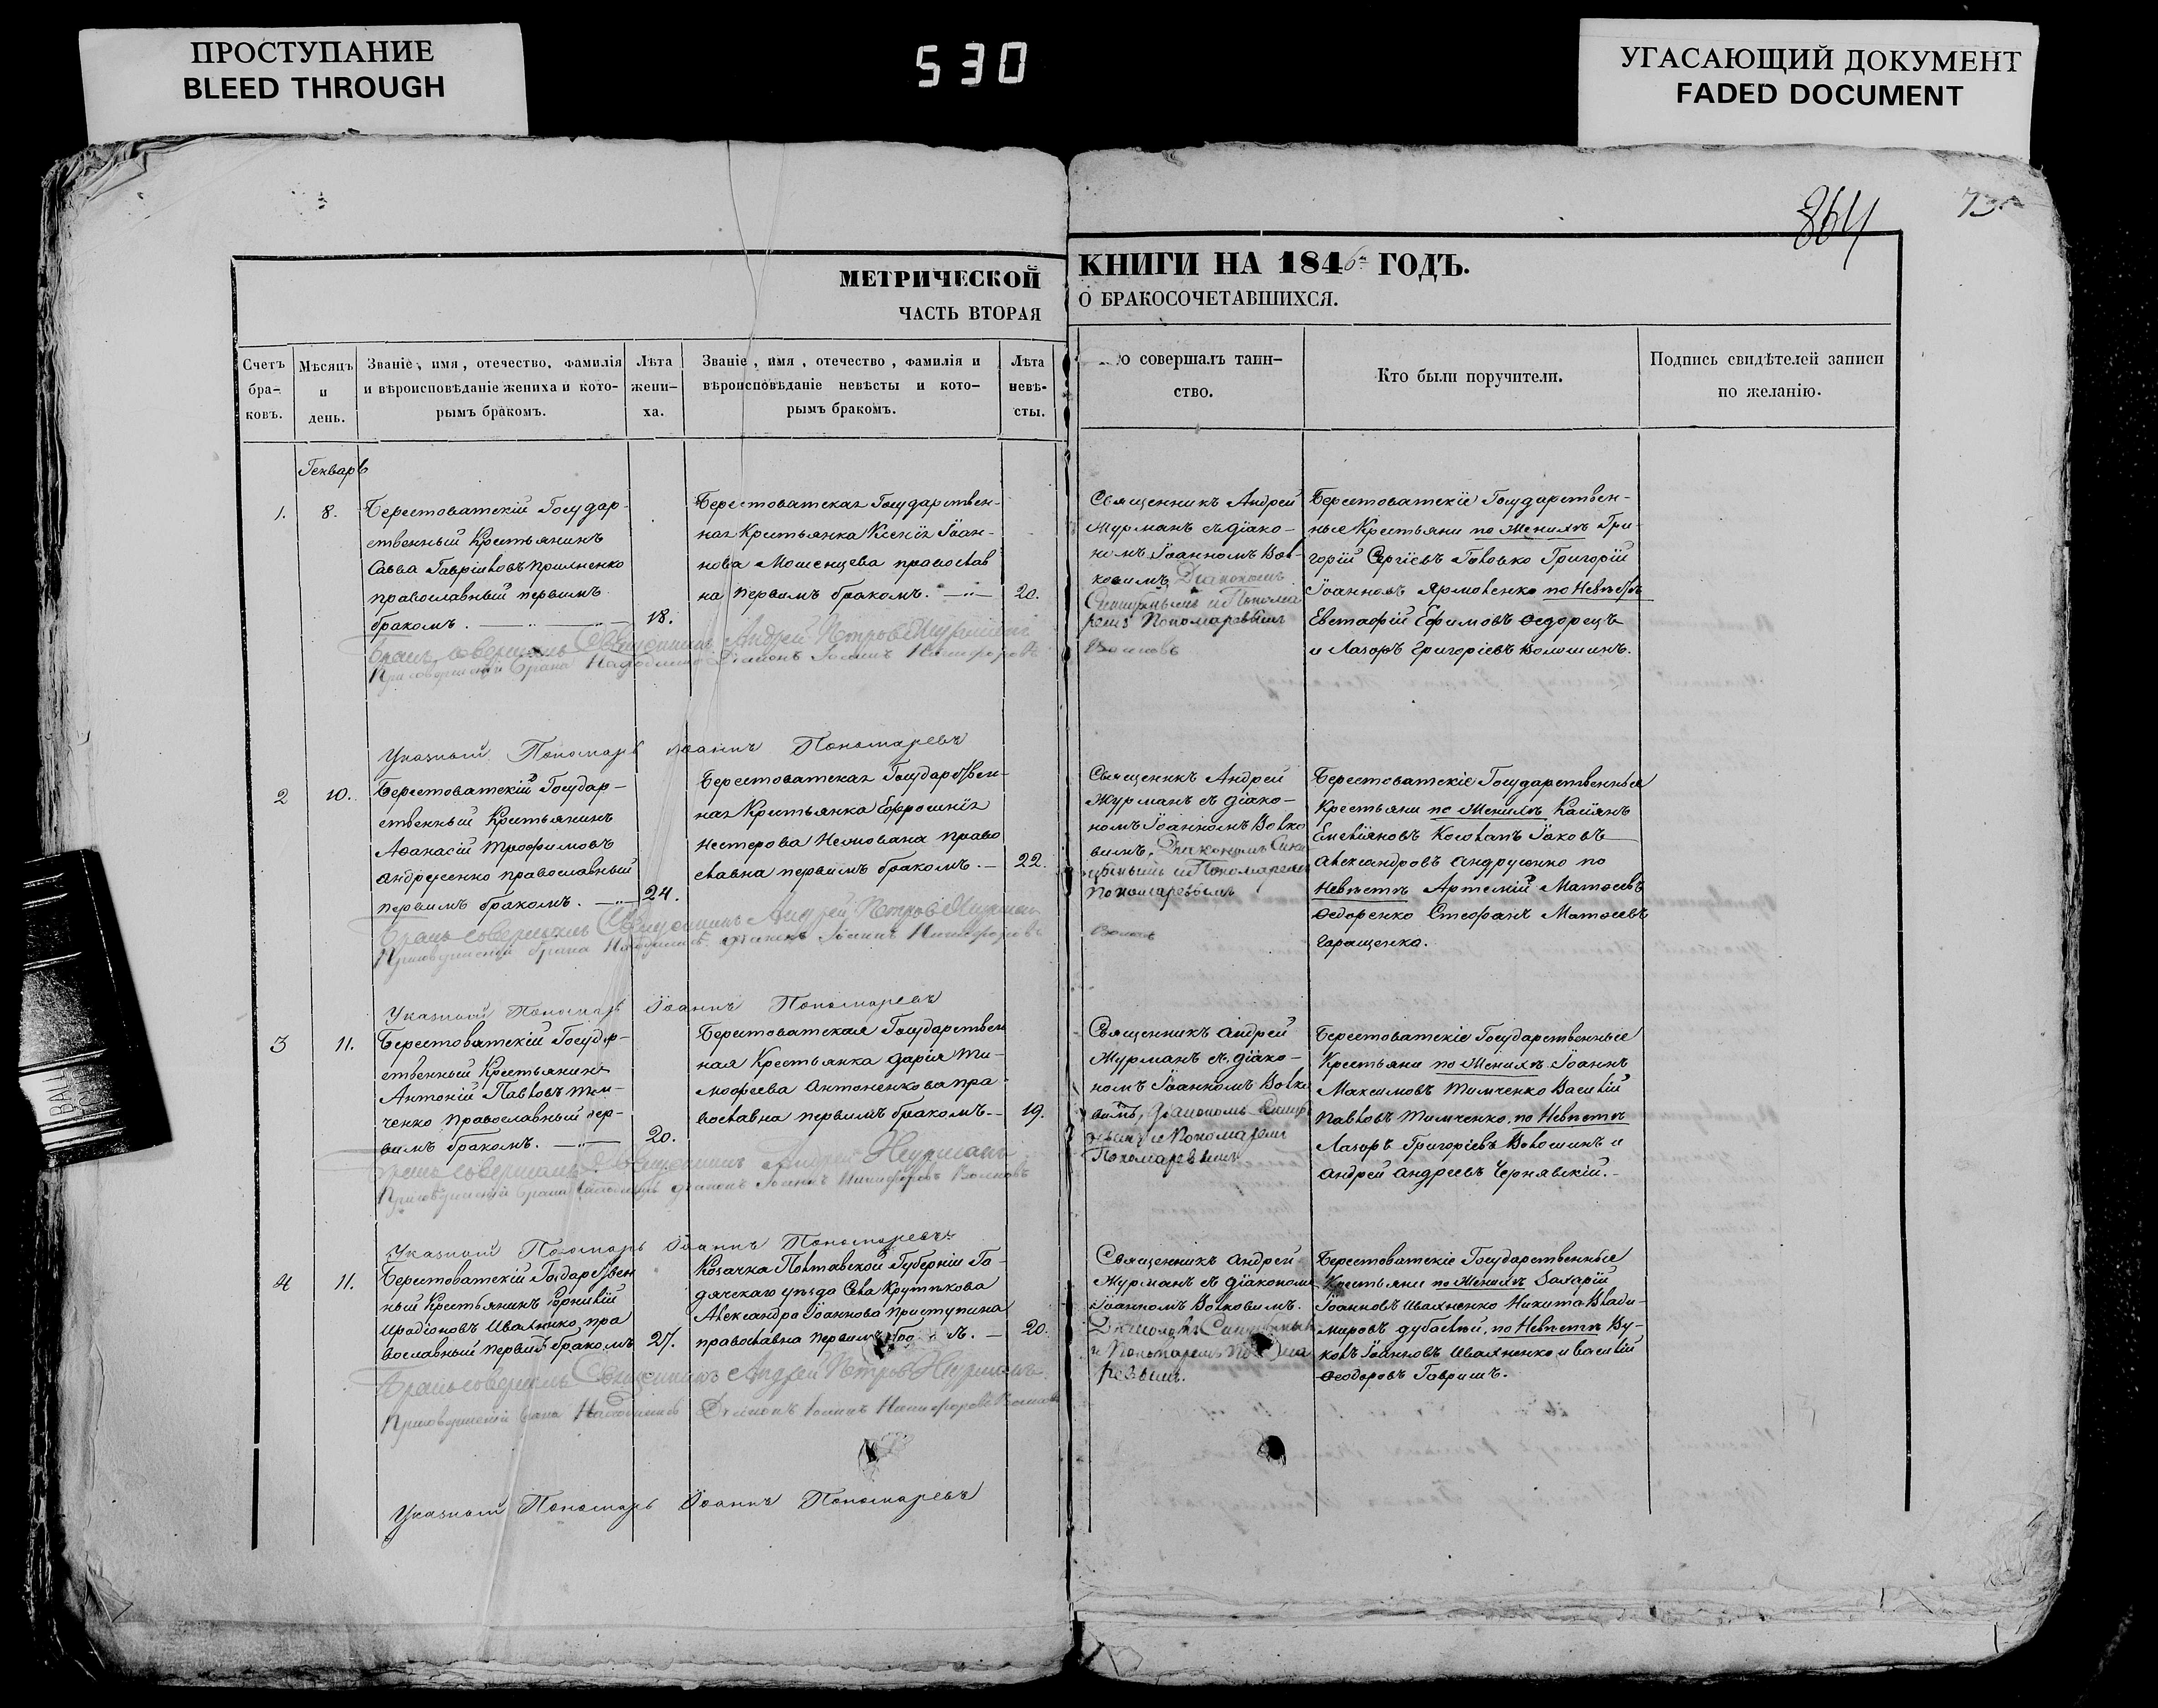 ПРОСТУПАНИЕ
BLEED THROUGH
530
УГАСАЮЩИЙ ДОКУМЕНТ
FADED DOCUMENT
864
МЕТРИЧЕСКОЙ
ЧАСТЬ ВТОРАЯ
КНИГИ НА 1846 ГОДЪ.
О БРАКОСОЧЕТАВШИХСЯ.
Счетъ бра-ковъ.
Мѣсяцъ и день.
Званіе, имя, отечество, фамилія
и вѣроисповѣданіе жениха и кото-
рымъ бракомъ.
Лѣта жени-ха.
Званіе, имя, отечество, фамилія и
вѣроисповѣданіе невѣсты и кото-
рымъ бракомъ.
Лѣта невѣ-сты.
совершалъ таин-
ство.
Кто были поручители.
Подпись свидѣтелей записи
по желанію.
Генварь
1. 8.
Берестоватскій Государ-
ственный Крестьянинъ
Савва Гавріиловъ
православный первымъ
бракомъ.
18.
Берестоватская Государствен-
ная Крестьянка Ксенія Іоан-
нова Мошенцева православ
на первымъ бракомъ.
20.
Священникъ Андрей
Журманъ съ діако-
номъ Іоанномъ Вол-
ковимъ, Діакономъ
и Понома
ремъ Пономаревымъ
Берестоватскіе Государствен-
ные Крестьяни по Женихѣ Гри-
горій Сергіевъ Головко Григорій
Іоанновъ Ярмоленко по Невѣстѣ
Евстафій Ефимовъ Ѳедорецъ
и Лазоръ Григоріевъ Волошинъ.
Бракъ совершалъ Священникъ Андрей Петровъ Журманъ
При совершеніи брака Находился Діаконъ Іоаннъ Никифоровъ
Волковъ
Указный Пономарь Іоаннъ Пономаревъ
2 10.
Берестоватскій Государ-
ственный Крестьянинъ
Аѳанасій Трофимовъ
Андрусенко православный
первымъ бракомъ.
24.
Берестоватская Государствен-
ная Крестьянка Евфросинія
Нестерова право
славна первимъ бракомъ.
22.
Священникъ Андрей
Журманъ съ діако-
номъ Іоанномъ Волко
вимъ, Діакономъ
и Пономаремъ
Пономаревымъ
Берестоватскіе Государственные
Крестьяни по Женихѣ Касіянъ
Емеліяновъ Іаковъ
Александровъ Андрусенко по
Невѣстѣ Артемій Матѳеевъ
Ѳедоренко Стефанъ Матѳеевъ
Гаращенко.
Бракъ совершалъ Священникъ Андрей Петровъ Журманъ
При совершеніи брака Находился діаконъ Іоаннъ Никифоровъ
Волковъ
Указный Пономарь Іоаннъ Пономаревъ
3 11.
Берестоватскій Государ-
ственный Крестьянинъ
Антоній Павловъ Тим-
ченко Православный пер-
вимъ бракомъ.
20.
Берестоватская Государствен
ная Крестьянка Дарія Ти-
моѳеева Антоненкова пра-
вославна первимъ бракомъ.
19.
Священникъ Андрей
Журманъ съ діако-
номъ Іоанномъ Волко
вимъ, діакономъ
и Пономаремъ
Пономаревымъ
Берестоватскіе Государственные
Крестьяни по Женихѣ Іоаннъ
Максимовъ Тимченко Василій
Павловъ Тимченко, по Невѣстѣ
Лазоръ Григоріевъ Волошинъ и
Андрей Андреевъ Чернявскій.
Бракъ совершалъ Священникъ Андрей Журманъ
При совершеніи брака Находился діаконъ Іоаннъ Никифоровъ Волковъ
Указный Пономарь Іоаннъ Пономаревъ
4 11.
Берестоватскій Государствен
ный Крестьянинъ Корнилій
Иродіоновъ Ивахненко пра
вославный первый бракомъ
27.
Козачка Полтавской Губерніи Га-
дячскаго уѣзда Села Крутькова
Александра Іоаннова Приступина
православна первимъ
20.
Священникъ Андрей
Журманъ съ діакономъ
Іоанномъ Волковимъ.
Діакономъ
и Пономаремъ
ревымъ.
Берестоватскіе Государственные
Крестьяни по Женихѣ Захарій
Іоанновъ Ивахненко Никита Влади-
мировъ по Невѣстѣ Ву-
колъ Іоанновъ Ивахненко и Василій
Ѳеодоровъ Гавришъ.
Бракъ совершалъ Священникъ Андрей Петровъ Журманъ
При совершеніи брака Находился Діаконъ Іоаннъ Никифоровъ Волковъ
Указный Пономарь Іоаннъ Пономаревъ